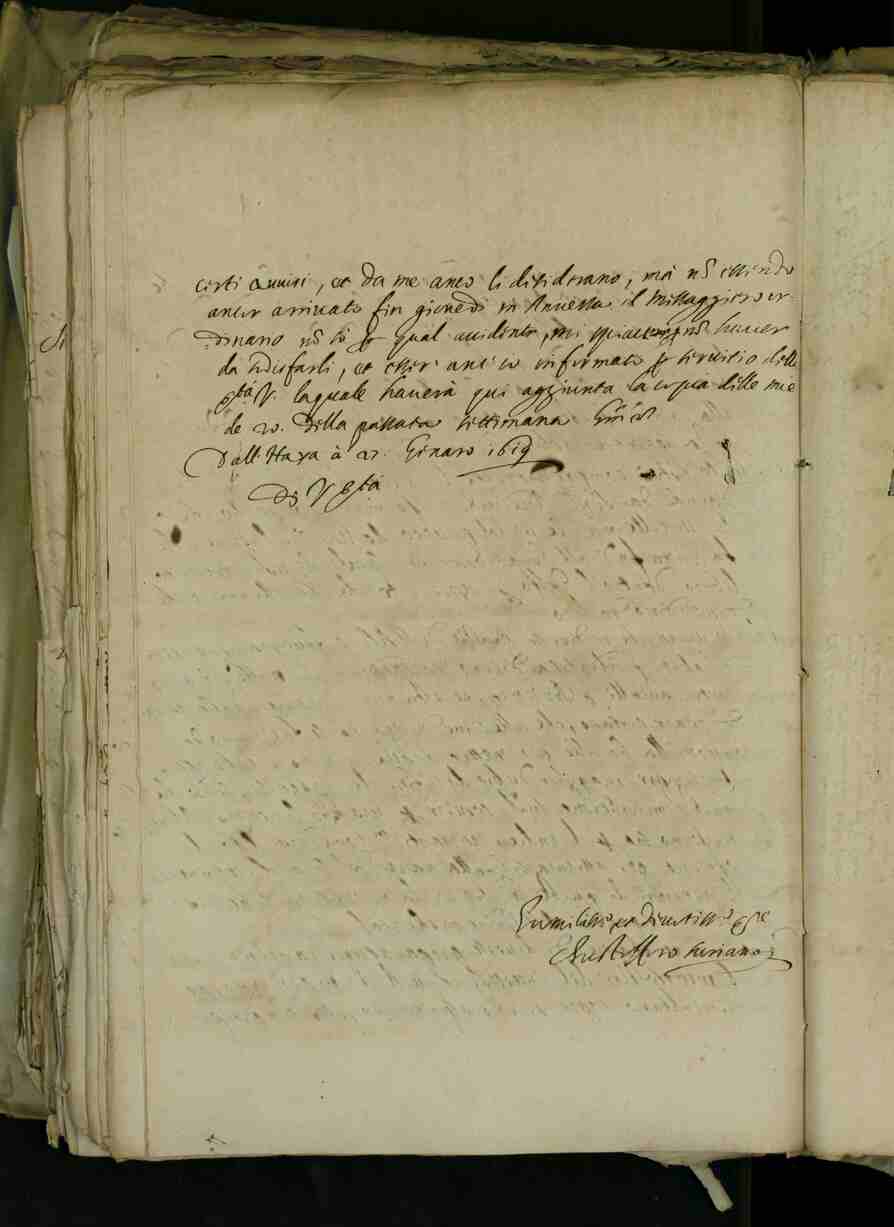 certi auuisi, et da me anco li desiderano, mà nõ essendo
ancor arriuato fin giouedi in Anuersa il Messaggiero or
dinario nõ sò ꝑ qual accidente, mi spiace nõ hauer
da sodisfarli, et esser anc'io informato ꝑ seruitio della
Stà V. laquale hauerà qui aggiunta la copia delle mie
de 20. della passata settimana
Dall'Haya à Genaro 1619
Di V Stà
Humilissº et Deuotissº sre
Christofforo Suriano